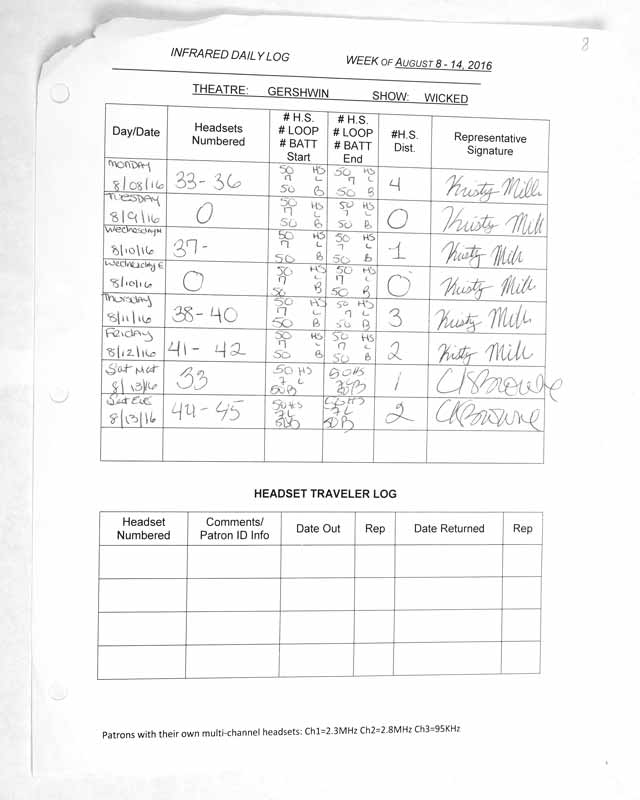 8
INFRARED DAILY LOG WEEK OF AUGUST 8 - 14, 2016
THEATRE: GERSHWIN SHOW: WICKED
Day/Date Headsets Numbered # H.S. # LOOP # BATT Start # H.S. # LOOP # BATT End #H.S. Dist. Representative Signature
MONDAY 8/08/16 33-36 50 HS 7 L 50 B 50 HS 7 L 50 B 4 Kristy Mill
TUESDAY 8/9/16 0 50 HS 7 L 50 B 50 HS 7 L 50 B 0 Kristy Mill
Wednesday M 8/10/16 37- 50 HS 7 L 50 B 50 HS 7 L 50 B 1 Kristy Mill
Wednesday E 8/10/16 0 50 HS 7 L 50 B 50 HS 7 L 50 B 0 Kristy Mill
Thursday 8/11/16 38-40 50 HS 7 L 50 B 50 HS 7 L 50 B 3 Kristy Mill
Friday 8/12/16 41-42 50 HS 7 L 50 B 50 HS 7 L 50 B 2 Kristy Mill
Sat Mat 8/13/16 33 50 HS 7 L 50B 50HS 50B 1 CKBrowne
Sat Eve 8/13/16 44-45 50HS 7L 50B 50HS 7L 50B 2 CKBrowne
HEADSET TRAVELER LOG
Headset Numbered Comments/ Patron ID Info Date Out Rep Date Returned Rep
Patrons with their own multi-channel headsets: Ch1=2.3MHz Ch2=2.8MHz Ch3=95KHz